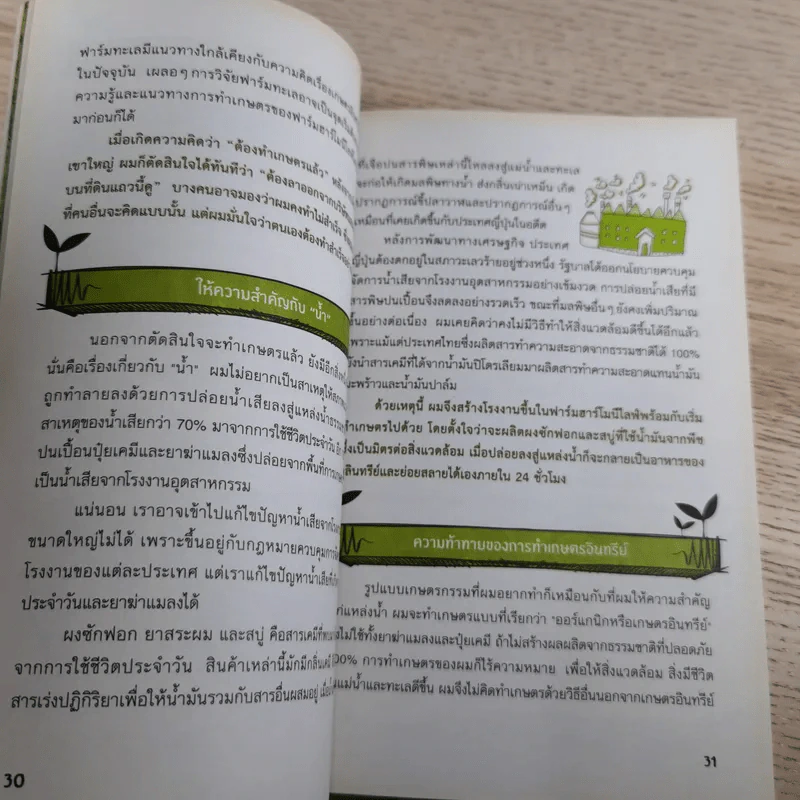 ฟาร์มทะเลมีแนวทางใกล้เคียงกับความคิดเรื่อง
ในปัจจุบัน เผลอๆ การวิจัยฟาร์มทะเลอาจเป็น
ความรู้และแนวทางการทำเกษตรของฟาร์มฮาร์โมนีไลฟ์
มาก่อนก็ได้
เมื่อเกิดความคิดว่า “ต้องทำเกษตรแล้ว”
เขาใหญ่ ผมก็ตัดสินใจได้ทันทีว่า “ต้องลาออกจาก
บนที่ดินแถวนี้ดู” บางคนอาจมองว่าผมคงทำไม่สำเร็จ
ที่คนอื่นจะคิดแบบนั้น แต่ผมมั่นใจว่าตนเองต้องทำสำเร็จ
ให้ความสำคัญกับ “น้ำ”
นอกจากตัดสินใจจะทำเกษตรแล้ว ยังมีอีก
นั่นคือเรื่องเกี่ยวกับ “น้ำ” ผมไม่อยากเป็นสาเหตุให้
ถูกทำลายลงด้วยการปล่อยน้ำเสียลงสู่แหล่งน้ำ
สาเหตุของน้ำเสียกว่า 70% มาจากการใช้ชีวิตประจำวัน
ปนเปื้อนปุ๋ยเคมีและยาฆ่าแมลงซึ่งปล่อยจากพื้นที่การ
เป็นน้ำเสียจากโรงงานอุตสาหกรรม
แน่นอน เราอาจเข้าไปแก้ไขปัญหาน้ำเสียจาก
ขนาดใหญ่ไม่ได้ เพราะขึ้นอยู่กับกฎหมายควบคุมการ
โรงงานของแต่ละประเทศ แต่เราแก้ไขปัญหาน้ำเสีย
ประจำวันและยาฆ่าแมลงได้
ผงซักฟอก ยาสระผม และสบู่ คือสารเคมีที่
จากการใช้ชีวิตประจำวัน สินค้าเหล่านี้มักมีกลิ่น
สารเร่งปฏิกิริยาเพื่อให้น้ำมันรวมกับสารอื่นผสมอยู่
30
ที่เจือปนสารพิษเหล่านี้ไหลลงสู่แม่น้ำและทะเล
จะก่อให้เกิดมลพิษทางน้ำ ส่งกลิ่นเน่าเหม็น เกิด
ปรากฏการณ์ขี้ปลาวาฬและปรากฏการณ์อื่นๆ
เหมือนที่เคยเกิดขึ้นกับประเทศญี่ปุ่นในอดีต
หลังการพัฒนาทางเศรษฐกิจ ประเทศ
ญี่ปุ่นต้องตกอยู่ในสภาวะเลวร้ายอยู่ช่วงหนึ่ง รัฐบาลได้ออกนโยบายควบคุม
จัดการน้ำเสียจากโรงงานอุตสาหกรรมอย่างเข้มงวด การปล่อยน้ำเสียที่มี
สารพิษปนเปื้อนจึงลดลงอย่างรวดเร็ว ขณะที่มลพิษอื่นๆ ยังคงเพิ่มปริมาณ
ขึ้นอย่างต่อเนื่อง ผมเคยคิดว่าคงไม่มีวิธีทำให้สิ่งแวดล้อมดีขึ้นได้อีกแล้ว
เพราะแม้แต่ประเทศไทยซึ่งผลิตสารทำความสะอาดจากธรรมชาติได้ 100%
ยังนำสารเคมีที่ได้จากน้ำมันปิโตรเลียมมาผลิตสารทำความสะอาดแทนน้ำมัน
มะพร้าวและน้ำมันปาล์ม
ด้วยเหตุนี้ ผมจึงสร้างโรงงานขึ้นในฟาร์มฮาร์โมนีไลฟ์พร้อมกับเริ่ม
ทำเกษตรไปด้วย โดยตั้งใจว่าจะผลิตผงซักฟอกและสบู่ที่ใช้น้ำมันจากพืช
ซึ่งเป็นมิตรต่อสิ่งแวดล้อม เมื่อปล่อยลงสู่แหล่งน้ำก็จะกลายเป็นอาหารของ
จุลินทรีย์และย่อยสลายได้เองภายใน 24 ชั่วโมง
ความท้าทายของการทำเกษตรอินทรีย์
รูปแบบเกษตรกรรมที่ผมอยากทำก็เหมือนกับที่ผมให้ความสำคัญ
แก่แหล่งน้ำ ผมจะทำเกษตรแบบที่เรียกว่า “ออร์แกนิกหรือเกษตรอินทรีย์”
ไม่ใช้ทั้งยาฆ่าแมลงและปุ๋ยเคมี ถ้าไม่สร้างผลผลิตจากธรรมชาติที่ปลอดภัย
100% การทำเกษตรของผมก็ไร้ความหมาย เพื่อให้สิ่งแวดล้อม สิ่งมีชีวิต
ในแม่น้ำและทะเลดีขึ้น ผมจึงไม่คิดทำเกษตรด้วยวิธีอื่นนอกจากเกษตรอินทรีย์
31